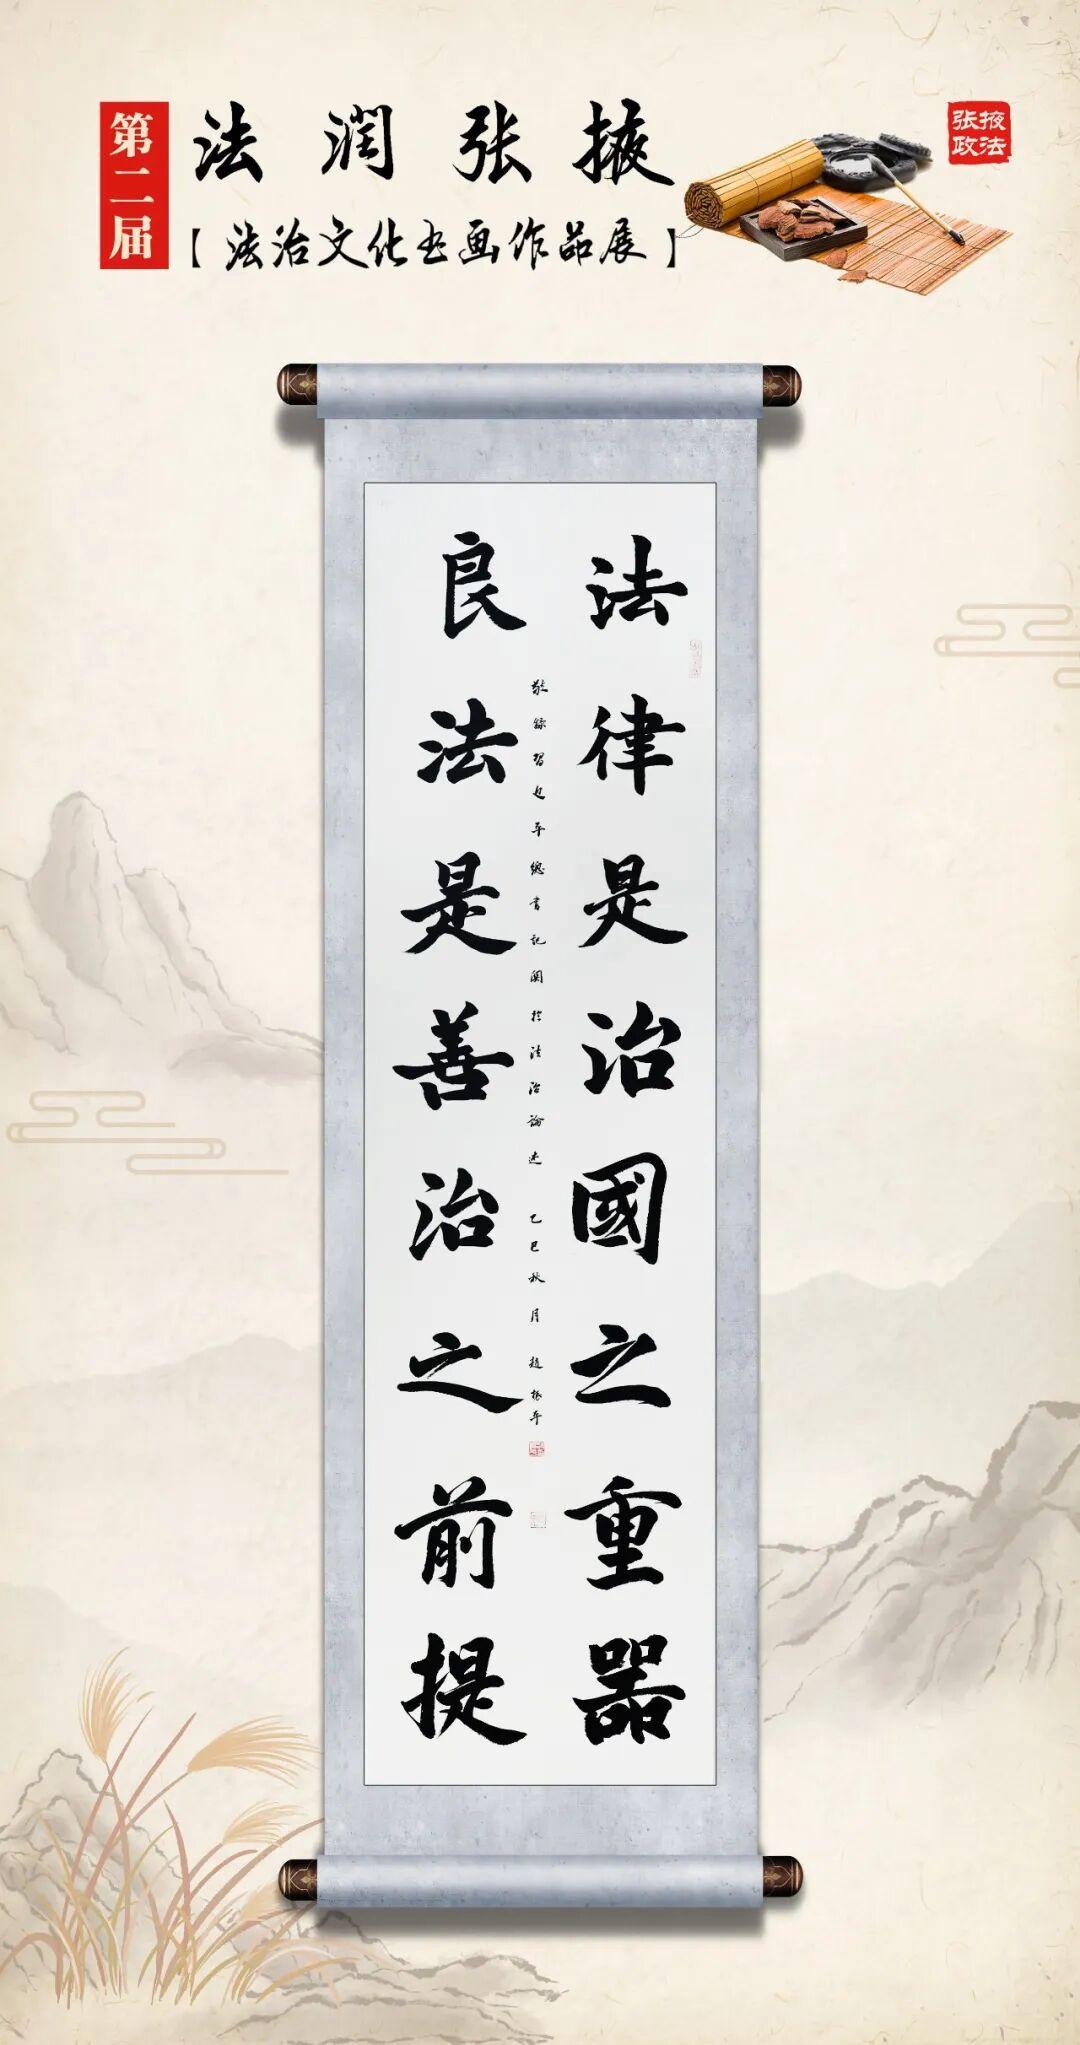 第二届
法润张掖
【法治文化书画作品展】
张掖
政法
法律是治國之重器
良法是善治之前提
敬録習近平總書記關於法治論述 乙巳秋月 趙振平